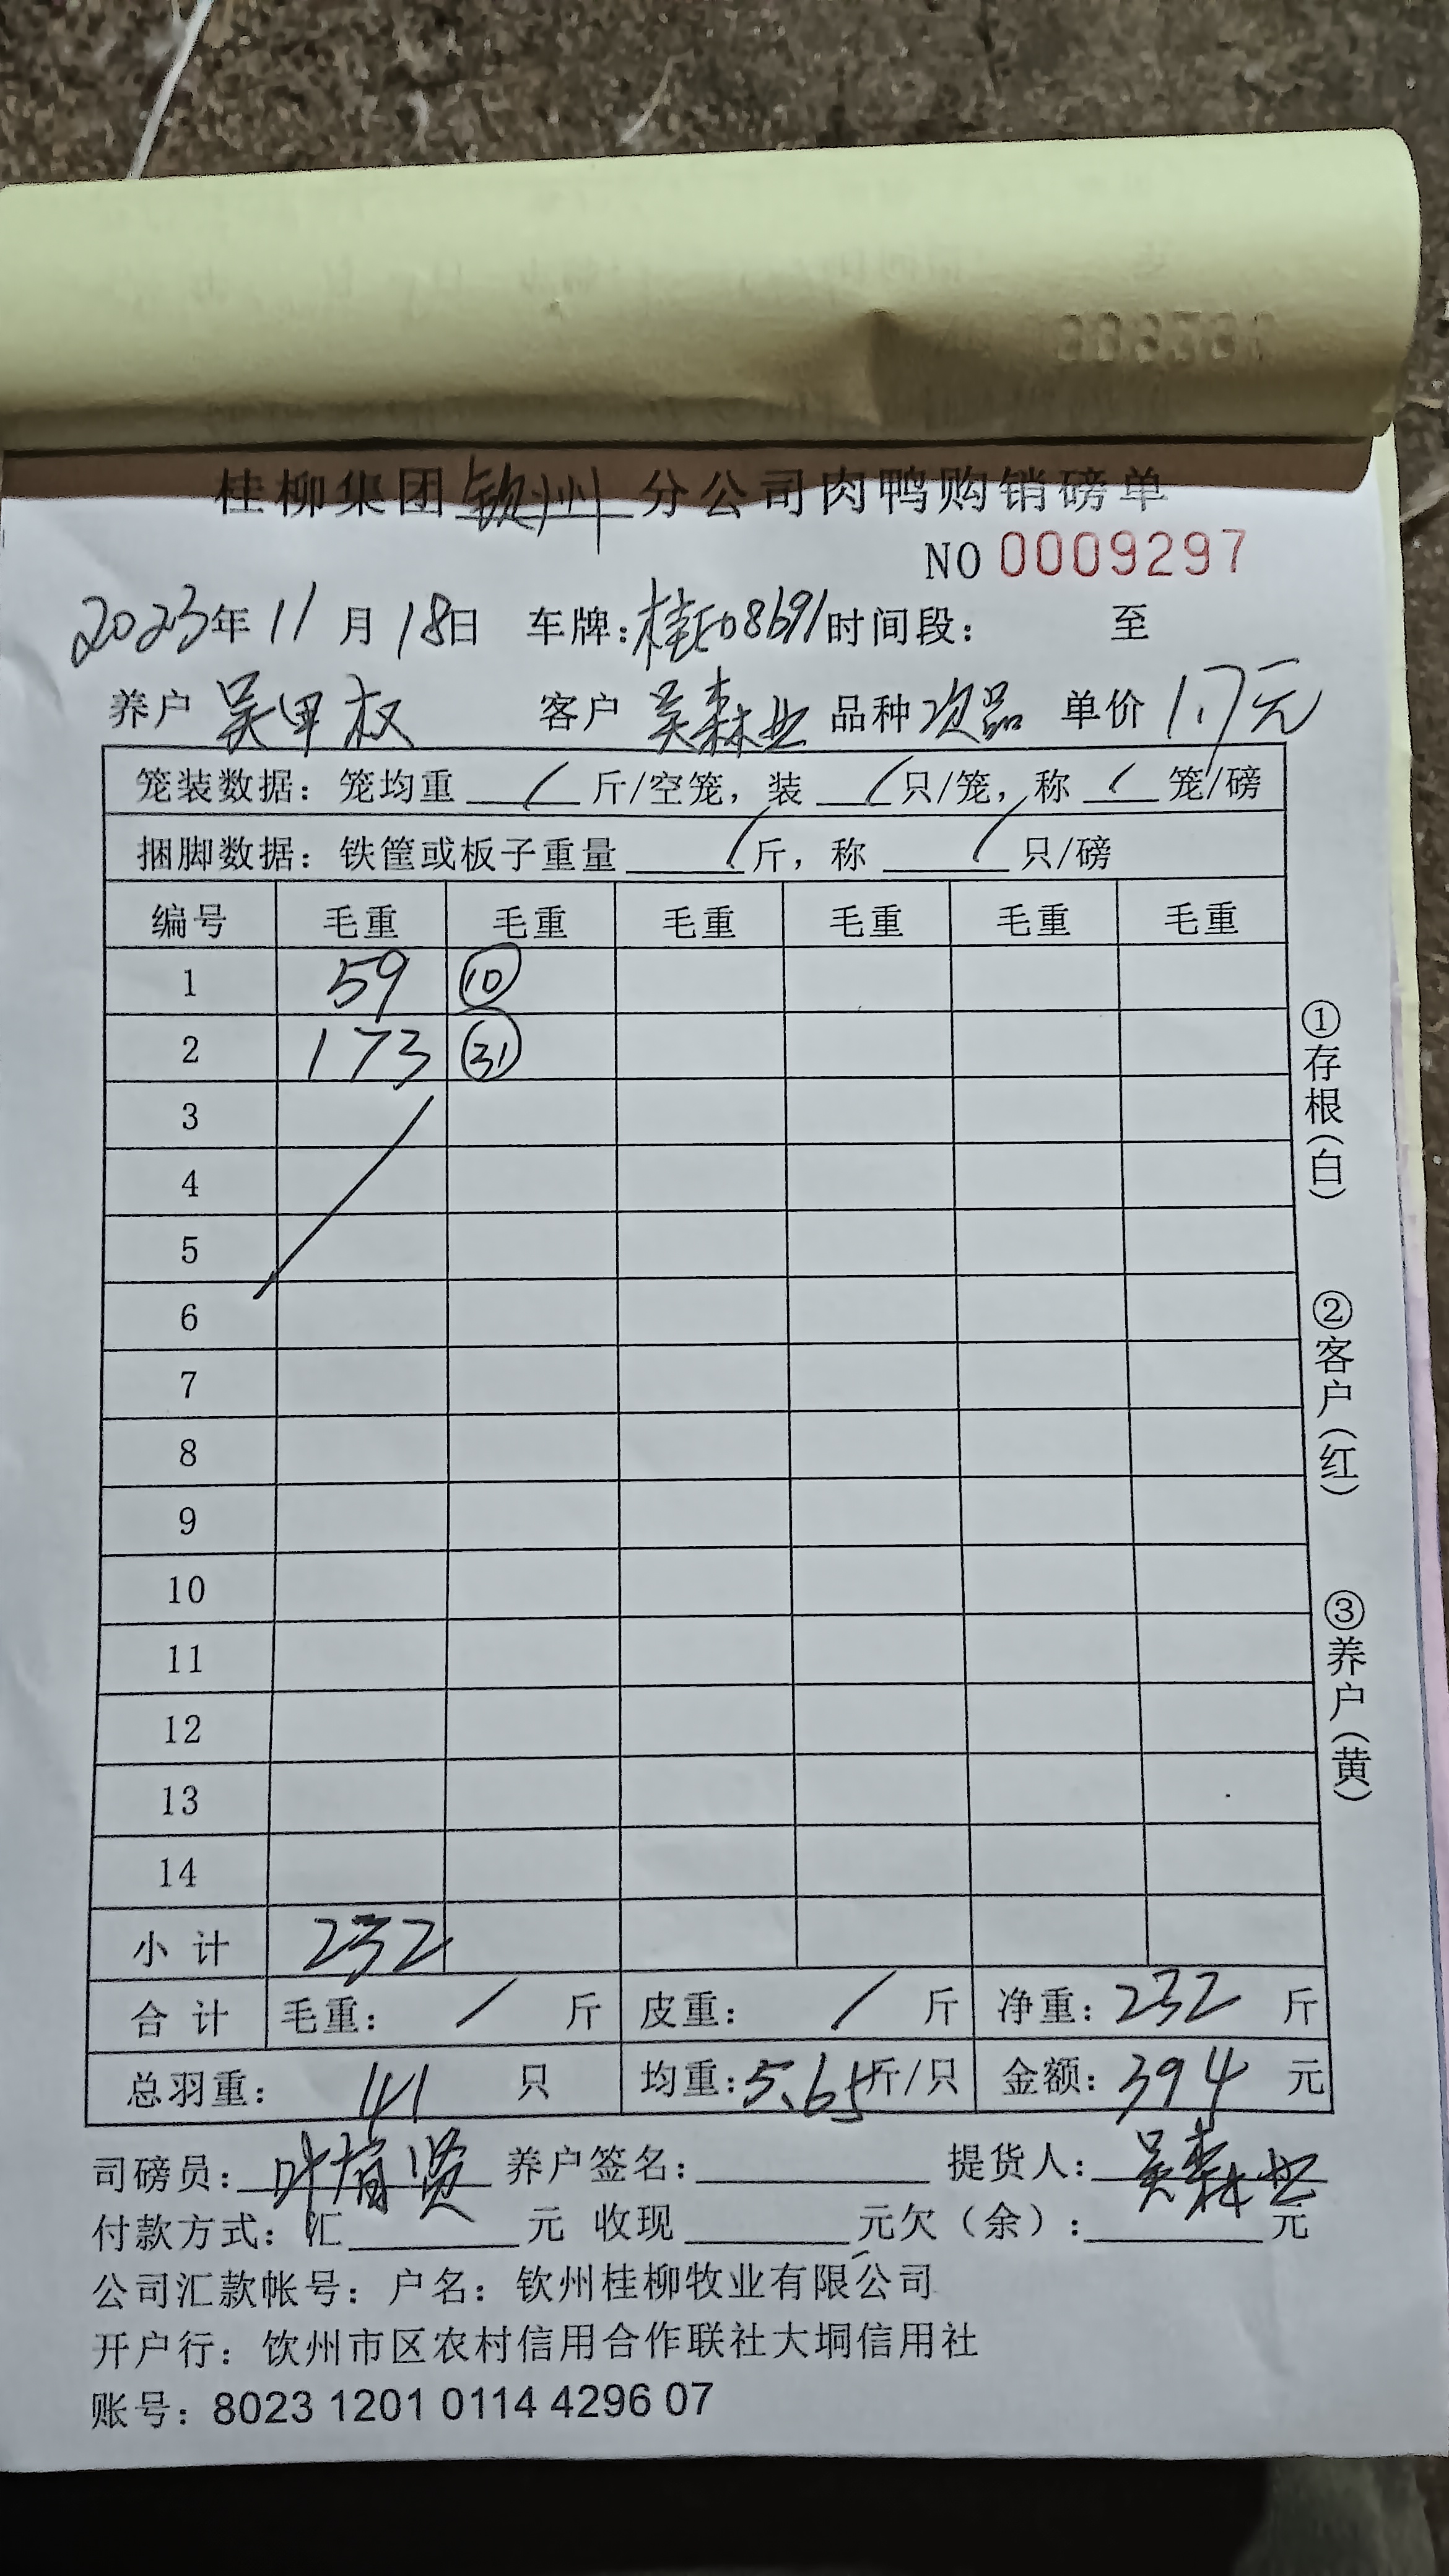 桂柳集团钦州分公司肉鸭购销磅单
NO 0009297
2023年11月18日 车牌: 时间段: 至
养户 吴甲权 客户 吴森业 品种 次品 单价 1.7元
笼装数据: 笼均重 / 斤/空笼, 装 / 只/笼, 称 / 笼/磅
捆脚数据: 铁筐或板子重量 / 斤, 称 / 只/磅
编号 毛重 毛重 毛重 毛重 毛重 毛重
1 59 ⑩
2 173 ㉛
3
4
5
6
7
8
9
10
11
12
13
14
小计 232
合计 毛重: / 斤 皮重: / 斤 净重: 232 斤
总羽重: 41 只 均重: 5.65斤/只 金额: 394 元
司磅员: 养户签名: 提货人: 吴森业
付款方式: 汇 元 收现 元欠(余): 元
公司汇款帐号: 户名: 钦州桂柳牧业有限公司
开户行: 钦州市区农村信用合作联社大垌信用社
账号: 8023 1201 0114 4296 07
①存根(白)
②客户(红)
③养户(黄)